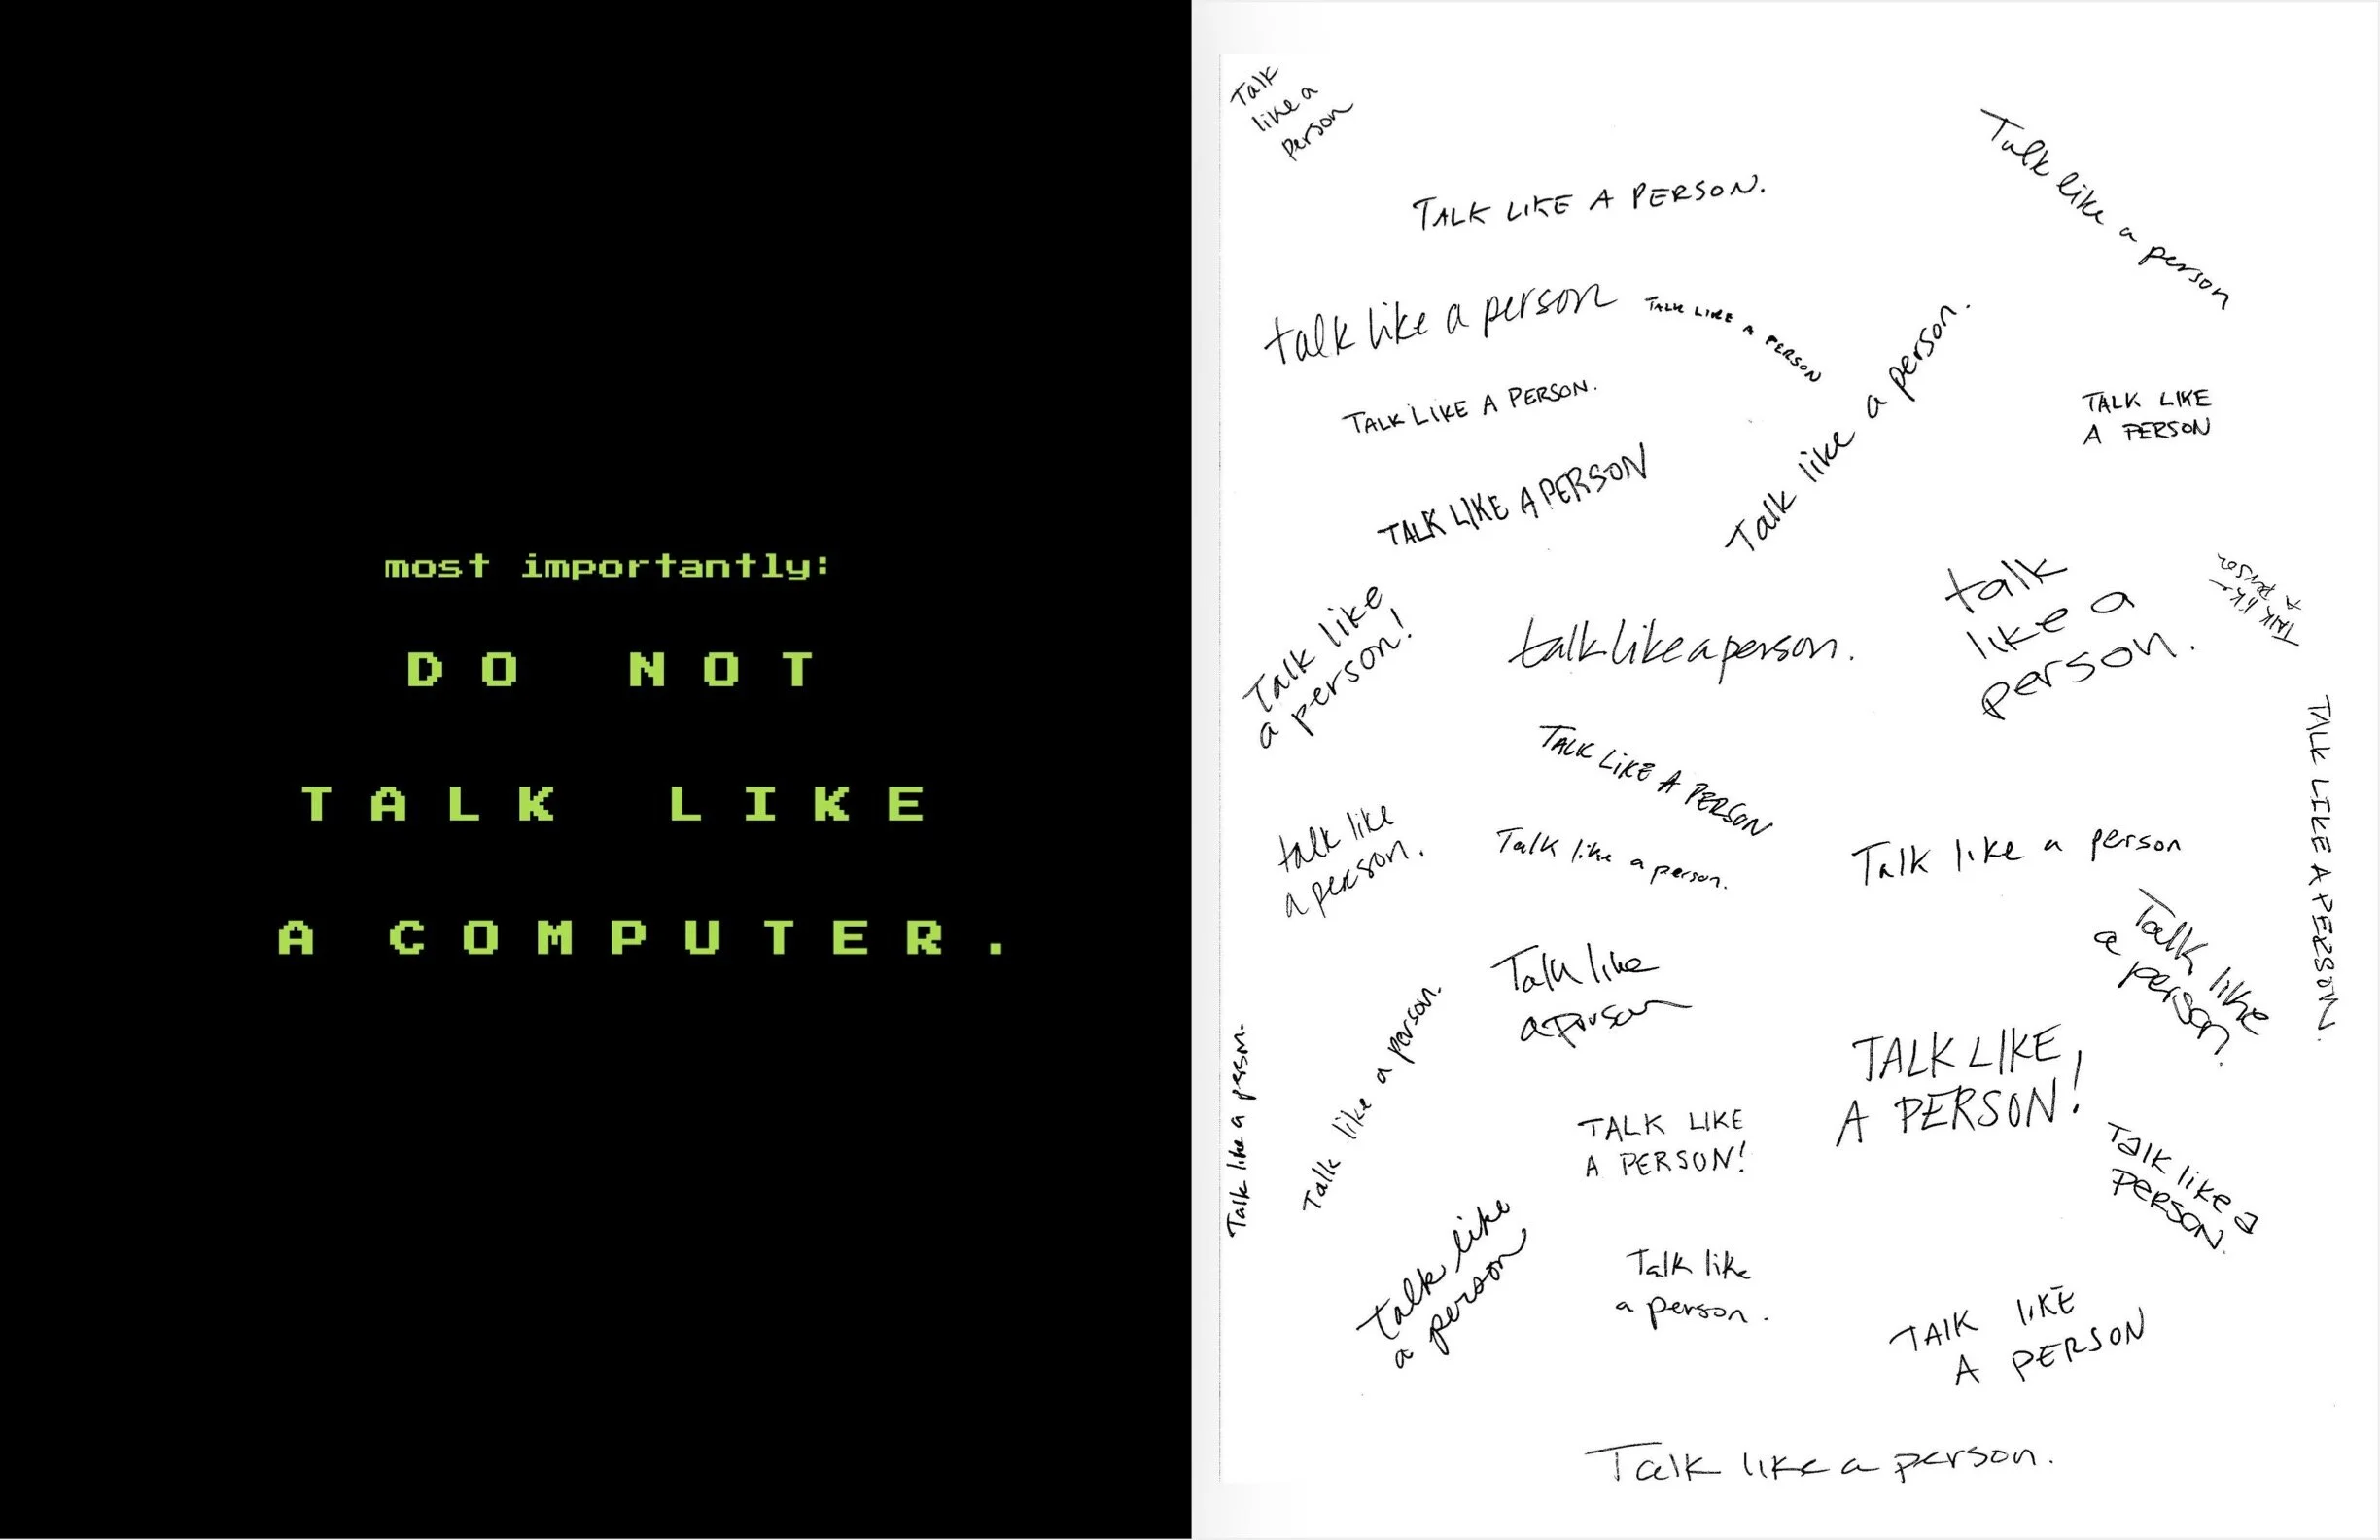 most importantly:
DO NOT
TALK LIKE
A COMPUTER.
Talk
like a
person
TALK LIKE A PERSON.
Talk like a person
talk like a person
TALK LIKE A PERSON
Talk like a person.
TALK LIKE A PERSON.
TALK LIKE
A PERSON
TALK LIKE A PERSON
talk
like a
person.
TALK like
A person
Talk like
a person!
talk like a person.
TALK LIKE A PERSON.
TALK LIKE A PERSON
talk like
a person.
Talk like a person.
Talk like a person
Talk like
a person.
Talk like
a person
Talk like a person.
Talk like a person.
TALK LIKE
A PERSON!
TALK LIKE
A PERSON!
Talk like a
PERSON.
Talk like
a person
Talk like
a person.
TALK LIKE
A PERSON
Talk like a person.